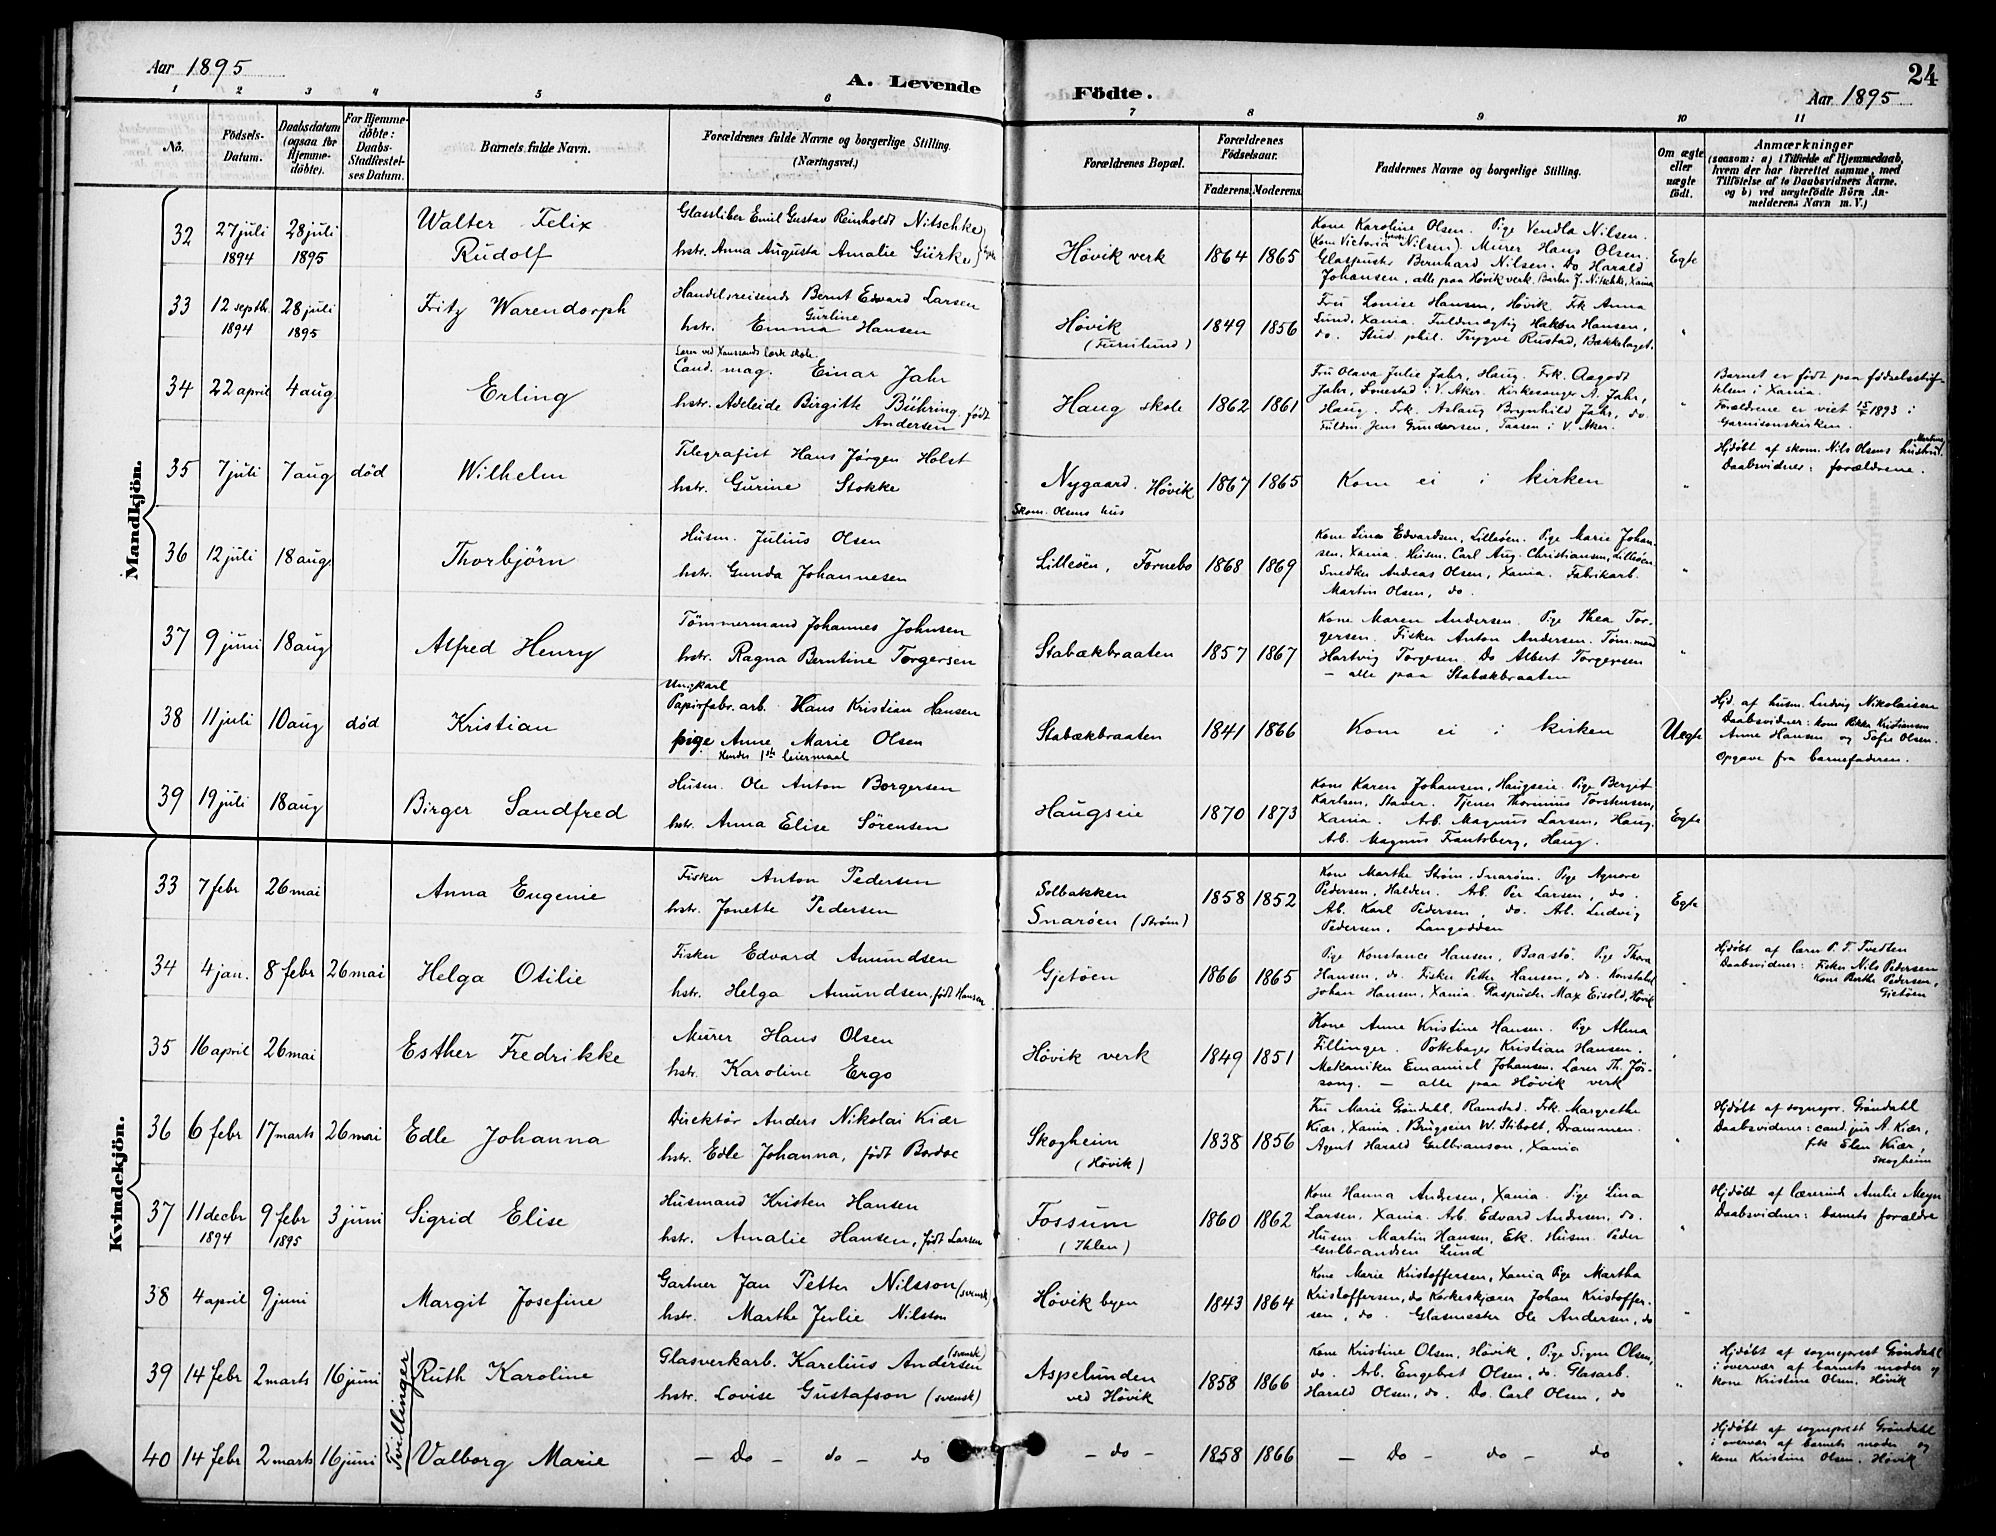 Aar 1895
A. Levende
Fødte.
24
Aar 1895
1 2 3 4 5 6 7 8 9 10 11
No.
Fødsels-Datum.
Daabsdatum (ogsaa for Hjemme-døbte).
For Hjemme-døbte: Daabs-Stadfæstel-ses Datum.
Barnets fulde Navn.
Forældrenes fulde Navne og borgerlige Stilling.
(Næringsvei.)
Forældrenes Bopæl.
Forældrenes Fødselsaar.
Faderens. Moderens.
Faddernes Navne og borgerlige Stilling.
Om ægte eller uægte født.
Anmærkninger
(saasom: a) i Tilfælde af Hjemmedaab,
hvem der har forrettet samme, med
Tilføielse af to Daabsvidners Navne,
og b) ved uægtefødte Børn An-
melderens Navn m. V.)
Mandkjön.
32 27 juli 1894 28 juli 1895 Walter Felix Rudolf
Glassliber Emil Gustav Reinholdt Nitschke
hstr. Anna Augusta Amalie Gürke
Høvik verk 1864 1865
Kone Karoline Olsen. Pige Vendla Nilsen.
(Kone Victoria Nilsen). Murer Hans Olsen.
Glaspuster Bernhard Nilsen, Do Harald
Johansen, alle paa Høvik verk. J. Nitschke, Xania
Egte
33 12 septbr 1894 28 juli 1895 Fritz Warendorph
Handelsreisende Bernt Edvard Larsen
hstr. Emma Gurline Hansen
Høvik (Furulund) 1849 1856
Fru Louise Hansen, Høvik. Frk Anna
Lund, Xania. Fuldmægtig Hakon Hansen,
do. Stud. phil. Trygve Rustad, Bækkelaget.
"
34 22 april 4 aug. Erling
Cand. mag. Einar Jahr
hstr. Adeleide Birgitte Bühring, født Andersen
Haug skole 1862 1861
Fru Olava Julie Jahr, Haug. Frk. Aagodt
Jahr, i V. Aker. Kirkesanger A. Jahr,
Haug. Frk. Aslaug Brynhild Jahr, do.
Fuldm. Jens Gundersen, Taasen i V. Aker.
"
Barnet er født paa fødselsstif-
telsen i Xania.
Forældrene er viet 15/ 1893 i
Garnisonskirken.
35 7 juli 7 aug død Wilhelm
Telegrafist Hans Jørgen Holst
hstr. Gurine Stokke
Nygaard. Høvik
Skom. Olsens hus
1867 1865
Kom ei i kirken
"
Hjdøbt af skom. Nils Olsens hustru.
Daabsvidner: forældrene.
36 12 juli 18 aug Thorbjørn
Husm. Julius Olsen
hstr. Gunda Johannesen
Lilleøen, Fornebo 1868 1869
Kone Lina Edvardsen, Lilleøen. Pige Marie Johan-
sen, Xania. Husm. Carl Aug. Christiansen, Lilleøen
Snedker Andreas Olsen, Xania. Fabrikarb.
Martin Olsen, do.
"
37 9 juni 18 aug Alfred Henry
Tømmermand Johannes Johnsen
hstr. Ragna Berntine Torgersen
Stabækbraaten 1857 1867
Kone Maren Andersen. Pige Thea Tor-
gersen. Fisker Anton Andersen. Tømmmd
Hartvig Torgersen. Do Albert Torgersen
— alle paa Stabækbraaten
"
38 11 juli 10 aug død Kristian
Ungkarl
Papirfabr. arb. Hans Kristian Hansen
pige Anne Marie Olsen
Hendes 1ste leiermaal
Stabækbraaten 1841 1866
Kom ei i kirken
Uegte
Hjd. af husm. Ludvig Nikolaisen
Daabsvidner: kone Rikke Kristiansen
Anne Hansen og Sofie Olsen.
Opgave fra barnefaderen.
39 19 juli 18 aug Birger Sandfred
Husm. Ole Anton Borgersen
hstr. Anna Elise Sørensen
Haugseie 1870 1873
Kone Karen Johansen, Haugseie. Pige Bergit
Karlsen, Staver. Tjener Torstensen,
Xania. Arb. Magnus Larsen, Haug.
Arb. Magnus Frantsberg, Haug.
Egte
Kvindekjön.
33 7 febr 26 mai Anna Eugenie
Fisker Anton Pedersen
hstr. Jonette Pedersen
Solbakken
Snarøen (Strøm)
1858 1852
Kone Marthe Strøm, Snarøen. Pige Agnore
Pedersen, Halden. Arb. Per Larsen, do.
Arb. Karl Pedersen, do. Arb. Ludvig
Pedersen, Langodden
Egte
34 4 jan. 8 febr 26 mai Helga Otilie
Fisker Edvard Amundsen
hstr. Helga Amundsen, født Hansen
Gjetøen 1866 1865
Pige Konstance Hansen, Baastø. Pige Thora
Hansen, do. Fisker Petter Hansen, do. Konstabel
Johan Hansen, Xania. Glaspuster Max Eisold, Høvik
"
Hjdøbt af lærer P. T. Tvedten
Daabsvidner: Fisker Nils Pedersen
Kone Berthe Pedersen,
Gjetøen
35 16 april 26 mai Esther Fredrikke
Murer Hans Olsen
hstr. Karoline Ergo
Høvik verk 1849 1851
Kone Anne Kristine Hansen. Pige Alma
Fillinger. Pottebager Kristian Hansen.
Mekaniker Emanuel Johansen. Lærer Th. Jør-
— alle paa Høvik verk
"
36 6 febr 17 marts 26 mai Edle Johanna
Direktør Anders Nikolai Kiær
hstr. Edle Johanna, født Bordoe
Skogheim (Høvik) 1838 1856
Fru Marie Grøndahl, Ramstad. Frk. Margrethe
Kiær, Xania. Brugseier W. Stibolt, Drammen.
Agent Harald Gulbranson, Xania
"
Hjdøbt af sognepr. Grøndahl
Daabsvidner: cand. jur A. Kiær,
frk Elen Kiær,
Skogheim
37 11 decbr 1894 9 febr 1895 3 juni Sigrid Elise
Husmand Kristen Hansen
hstr. Amalie Hansen, født Larsen
Fossum (Ihlen) 1860 1862
Kone Hanna Andresen, Xania. Pige Lina
Larsen, Xania. Arb. Edvard Andresen, do.
Husm. Martin Hansen, Ek. Husm. Peder
Gulbrandsen Lund
"
Hjdøbt af lærerinde Amelie Meyn
Daabsvidner: barnets forældre
38 4 april 9 juni Margit Josefine
Gartner Jan Petter Nilsson (svensk)
hstr. Marthe Julie Nilsson
Høvik byen 1843 1864
Kone Marie Kristoffersen, Xania Pige Martha
Kristoffersen, do Korkeskjærer Johan Kristoffer-
sen, do. Glasmester Ole Andersen, do
"
Tvillinger
39 14 febr 2 marts 16 juni Ruth Karoline
Glasverkarb. Karelius Andersen (svensk)
hstr. Lovise Gustafson (svensk)
Aspelunden
ved Høvik
1858 1866
Kone Kristine Olsen, Høvik, Pige Signe Olsen,
do. Arb. Engebret Olsen, do. Glasarb.
Harald Olsen, do. Do. Carl Olsen, do
"
Hjdøbt af sogneprest Grøndahl
i overvær af barnets moder og
kone Kristine Olsen, Høvik
40 14 febr 2 marts 16 juni Valborg Marie
— Do — do — do
— do — 1858 1866
— Do — do — do
"
Hjdøbt af sogneprest Grøndahl
i overvær af barnets moder og
kone Kristine Olsen, Høvik